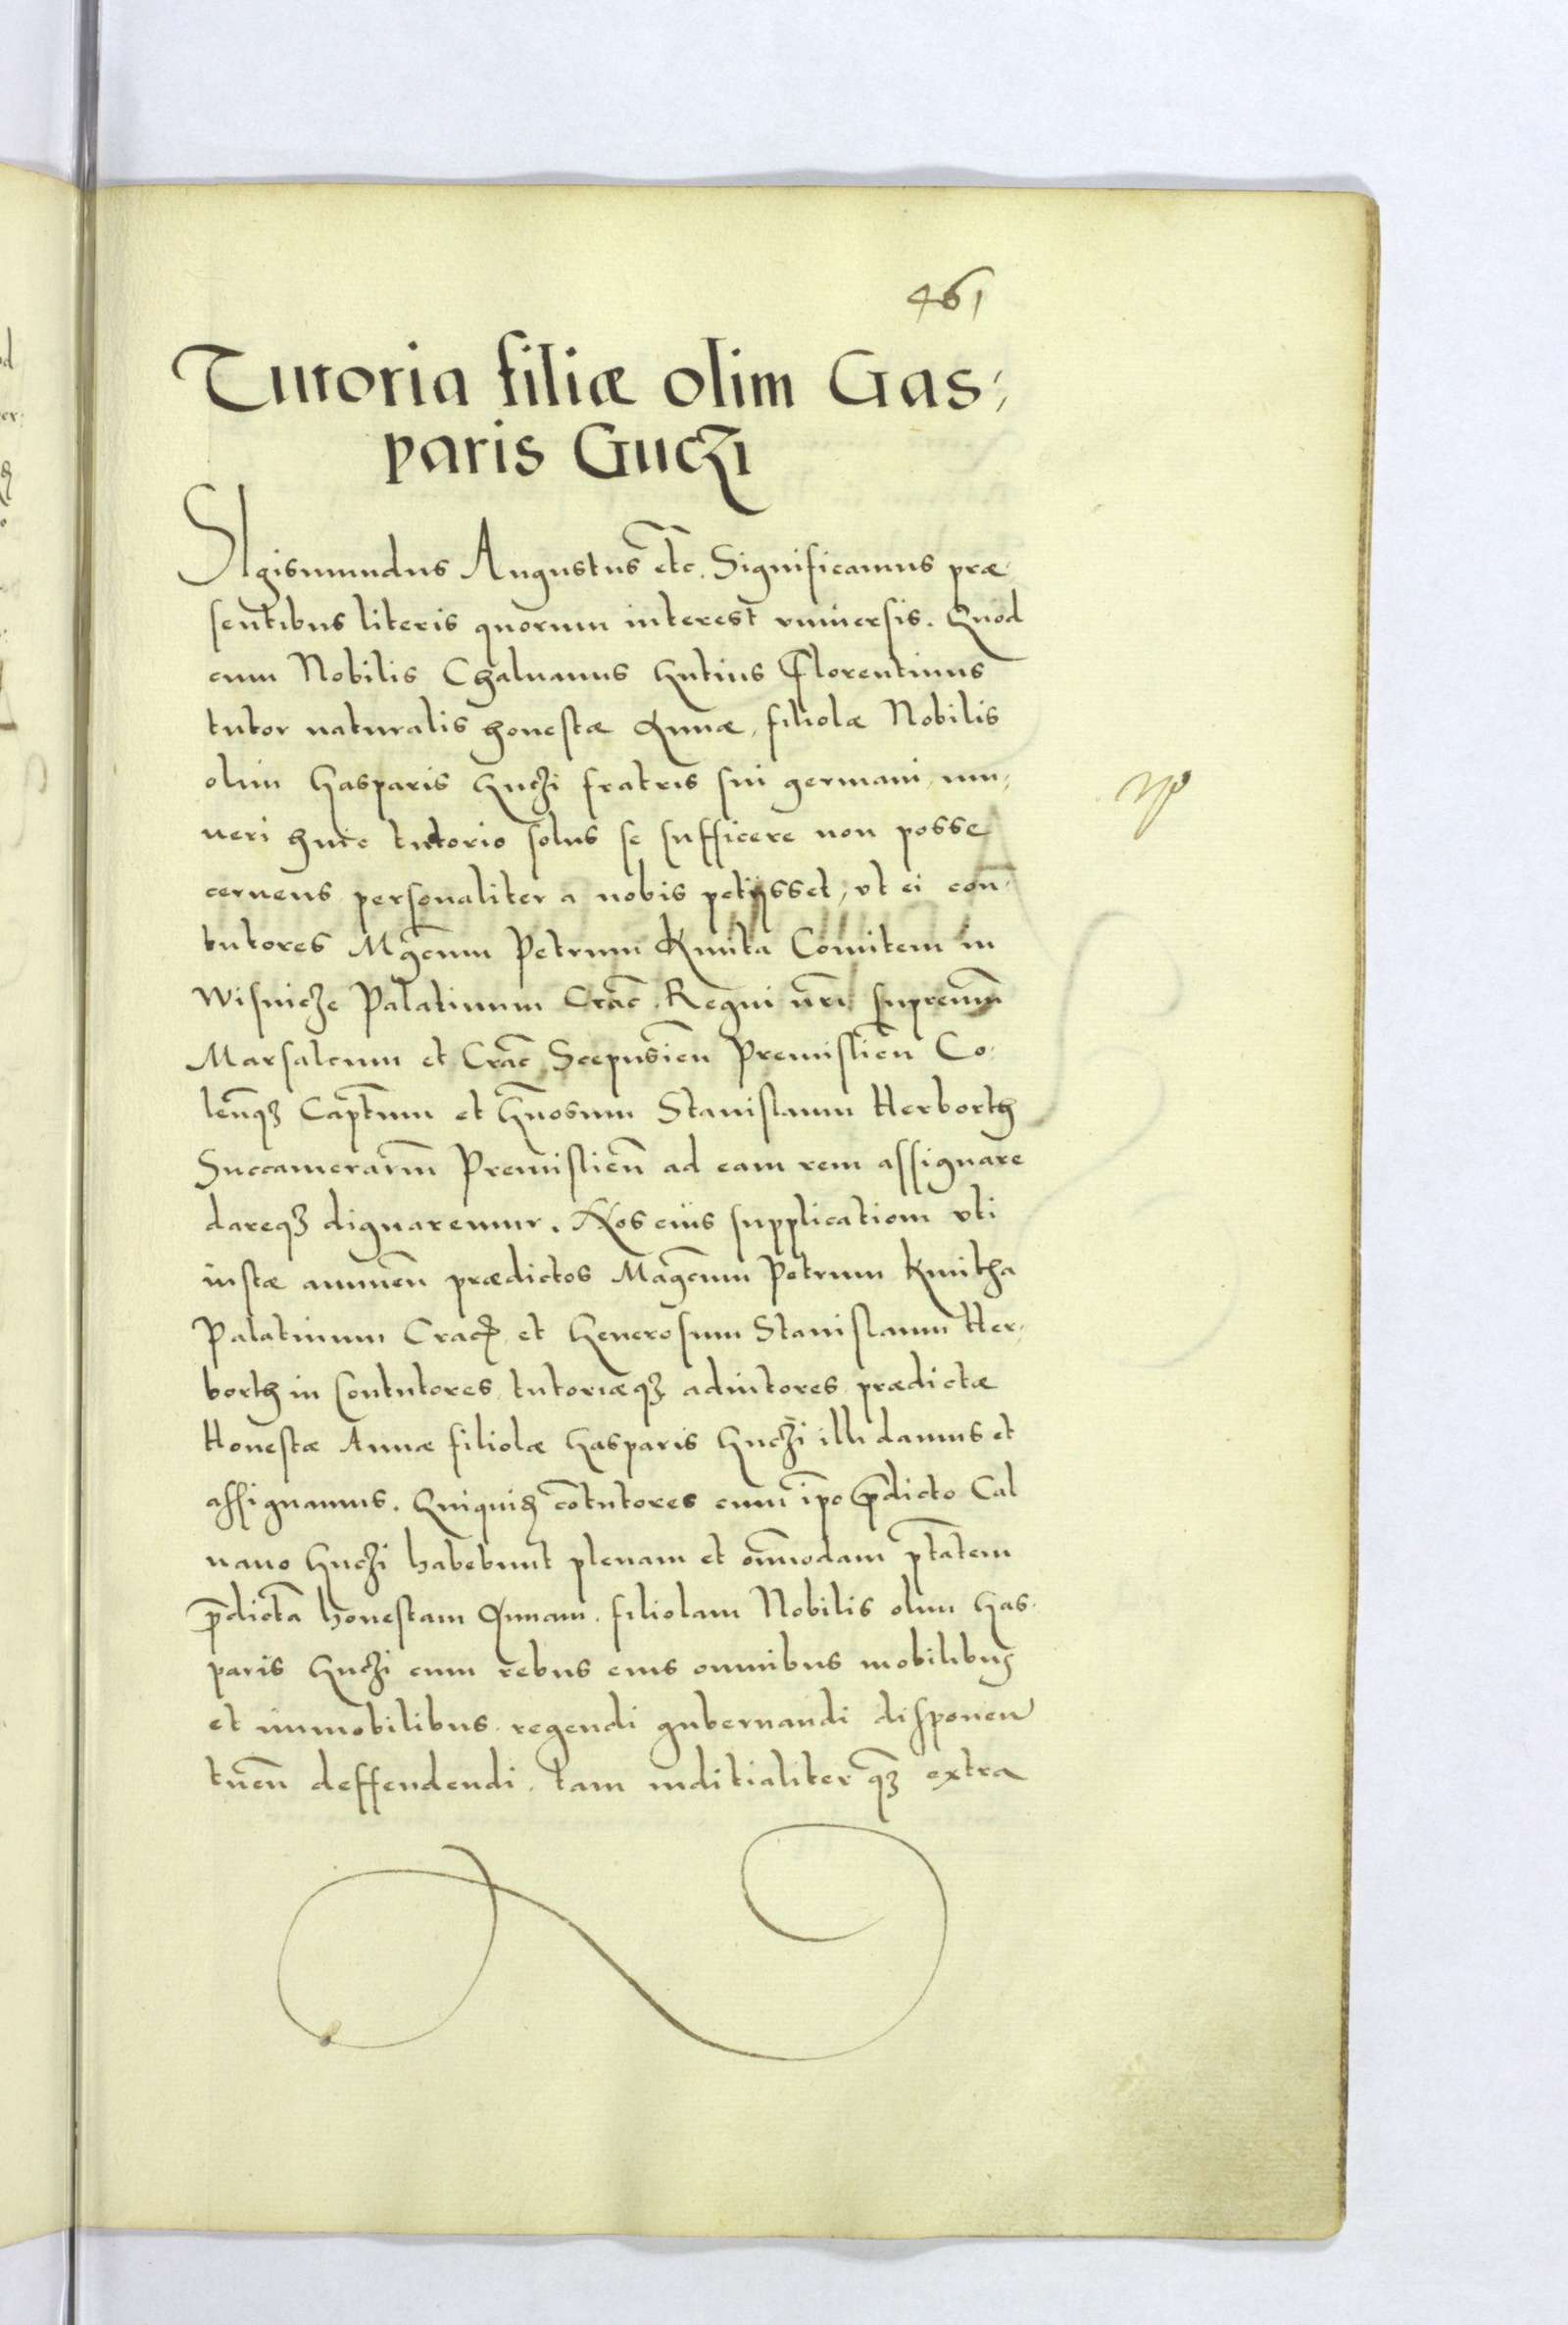 461
Tutoria filiæ olim Gas,
paris Guczi
SIgismundus Augustus etc. Significamus præ
sentibus literis quorum interest vniuersis. Quod
cum Nobilis Chaluanus Gutius Florentinus
tutor naturalis honestæ Annæ, filiolæ Nobilis
olim Gasparis Guczi fratris sui germani, mu,
neri huic tutorio solus se sufficere non posse
cernens personaliter a nobis petijsset, vt ei con
tutores Mgcum Petrum Kmita Comitem in
Wisnicze Palatinum Crac. Regni nri supremum
Marsalcum et Crac Scepusien Premislien Co
lenqz Captum et Gnosum Stanislaum Herborth
Succamerarium Premislien ad eam rem assignare
dareqz dignaremur. Nos eius supplicationi vti
iustæ annuen prædictos Magcum Petrum Kmitha
Palatinum Crac et Generosum Stanislaum Her,
borth in Contutores tutoriæqz adiutores prædictæ
Honestæ Annæ filiolæ Gasparis Guczi illi damus et
assignamus. Quiquid contutores cum ipo prdicto Cal
uano Guczi habebunt plenam et omnimodam ptatem
prdictã honestam Annam, filiolam Nobilis olim Gas.
paris Guczi cum rebus eius omnibus mobilibus
et immobilibus regendi gubernandi disponen
tuen deffendendi, tam iuditialiter qz extra